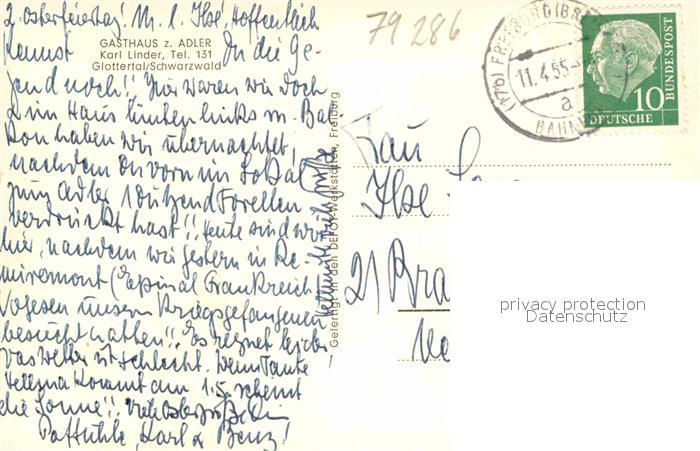 2. Osterfeiertag! M. l. Ilse, Hoffentlich
kennst
GASTHAUS z. ADLER
Karl Linder, Tel. 131
Glottertal/Schwarzwald
Du die Ge-
gend noch!! Hier waren wir doch
im Haus hinten links m. Bal-
kon haben wir übernachtet,
nachdem Du vorn im Lokal
zum Adler 1 Dutzend Forellen
verdrückt hast!! Heute sind wir
hier, nachdem wir gestern in Re-
miremont (Epinal Frankreich
Vogesen unseren Kriegsgefangenen
besucht hatten!! Es regnet leider
das Wetter ist schlecht. Wenn Tante
kommt am 1.5. scheint
die Sonne!! Viele Ostergrüße
Karl &
Gefertigt in den DEFOT-Werkstätten, Freiburg
79 286
(17b) FREIBURG (BR
11.4.55
a
BAHN
10
DEUTSCHE
BUNDESPOST
Frau
Ilse
21 Bra
privacy protection
Datenschutz